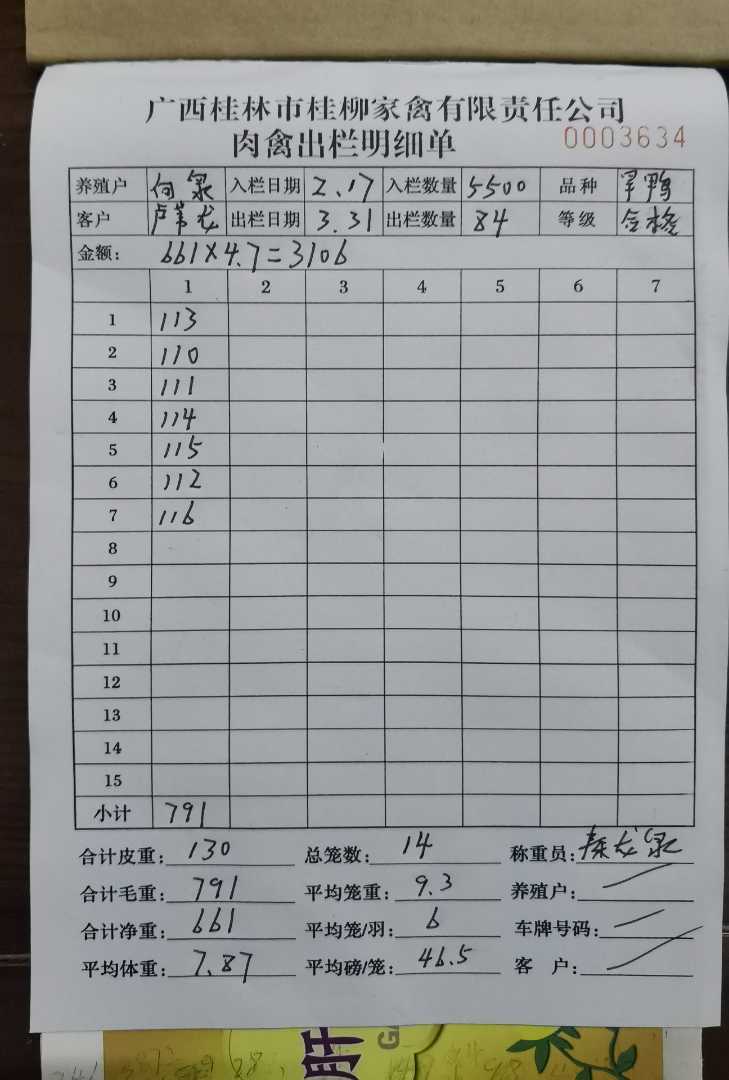 广西桂林市桂柳家禽有限责任公司
肉禽出栏明细单 0003634
养殖户 入栏日期 2.17 入栏数量 5500 品种
客户 出栏日期 3.31 出栏数量 84 等级 合格
金额: 661×4.7=3106
1 2 3 4 5 6 7
1 113
2 110
3 111
4 114
5 115
6 112
7 116
8
9
10
11
12
13
14
15
小计 791
合计皮重: 130 总笼数: 14 称重员:
合计毛重: 791 平均笼重: 9.3 养殖户:
合计净重: 661 平均笼/羽: 6 车牌号码:
平均体重: 7.87 平均磅/笼: 46.5 客 户:
肝